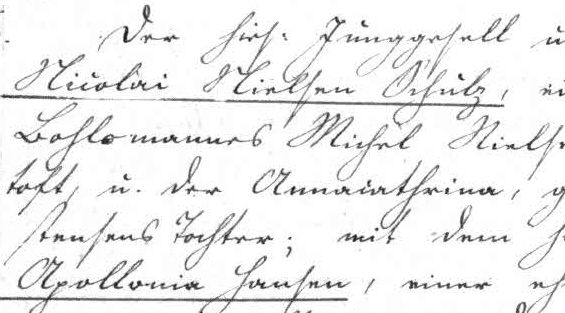 Der hies: Junggesell u
Nicolai Nielsen Schulz, ei
Bohlsmannes Michel Niels
toft, u. der Annacathrina, g
stensens Tochter; mit dem h
Apollonia Hansen, einer eh